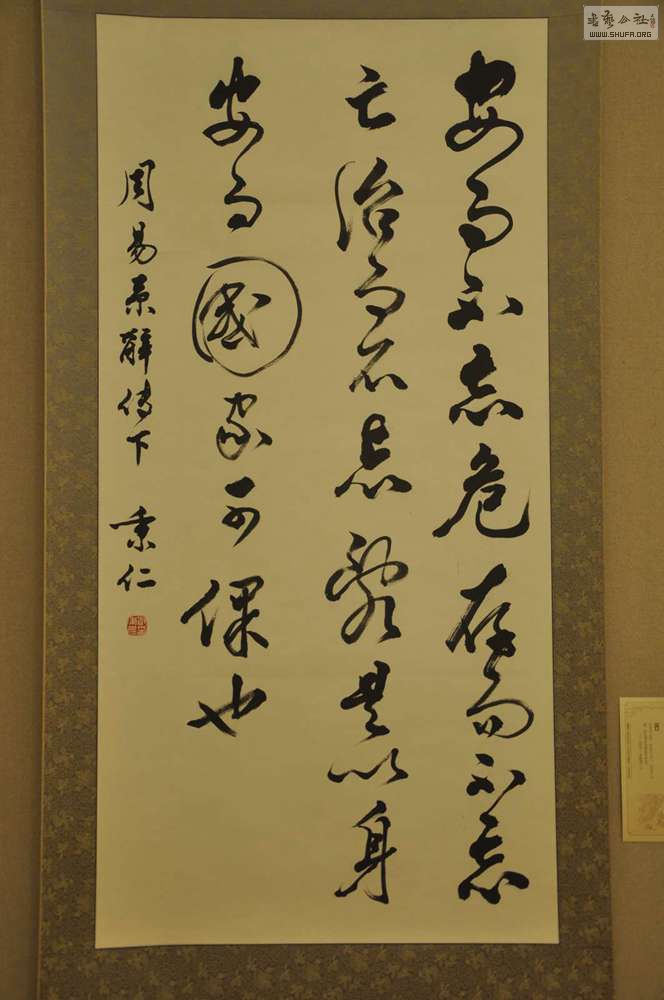 安而不忘危存而不忘
亡治而不忘亂是以身
安而國家可保也
周易系辭傳下 秉仁
WWW.SHUFA.ORG